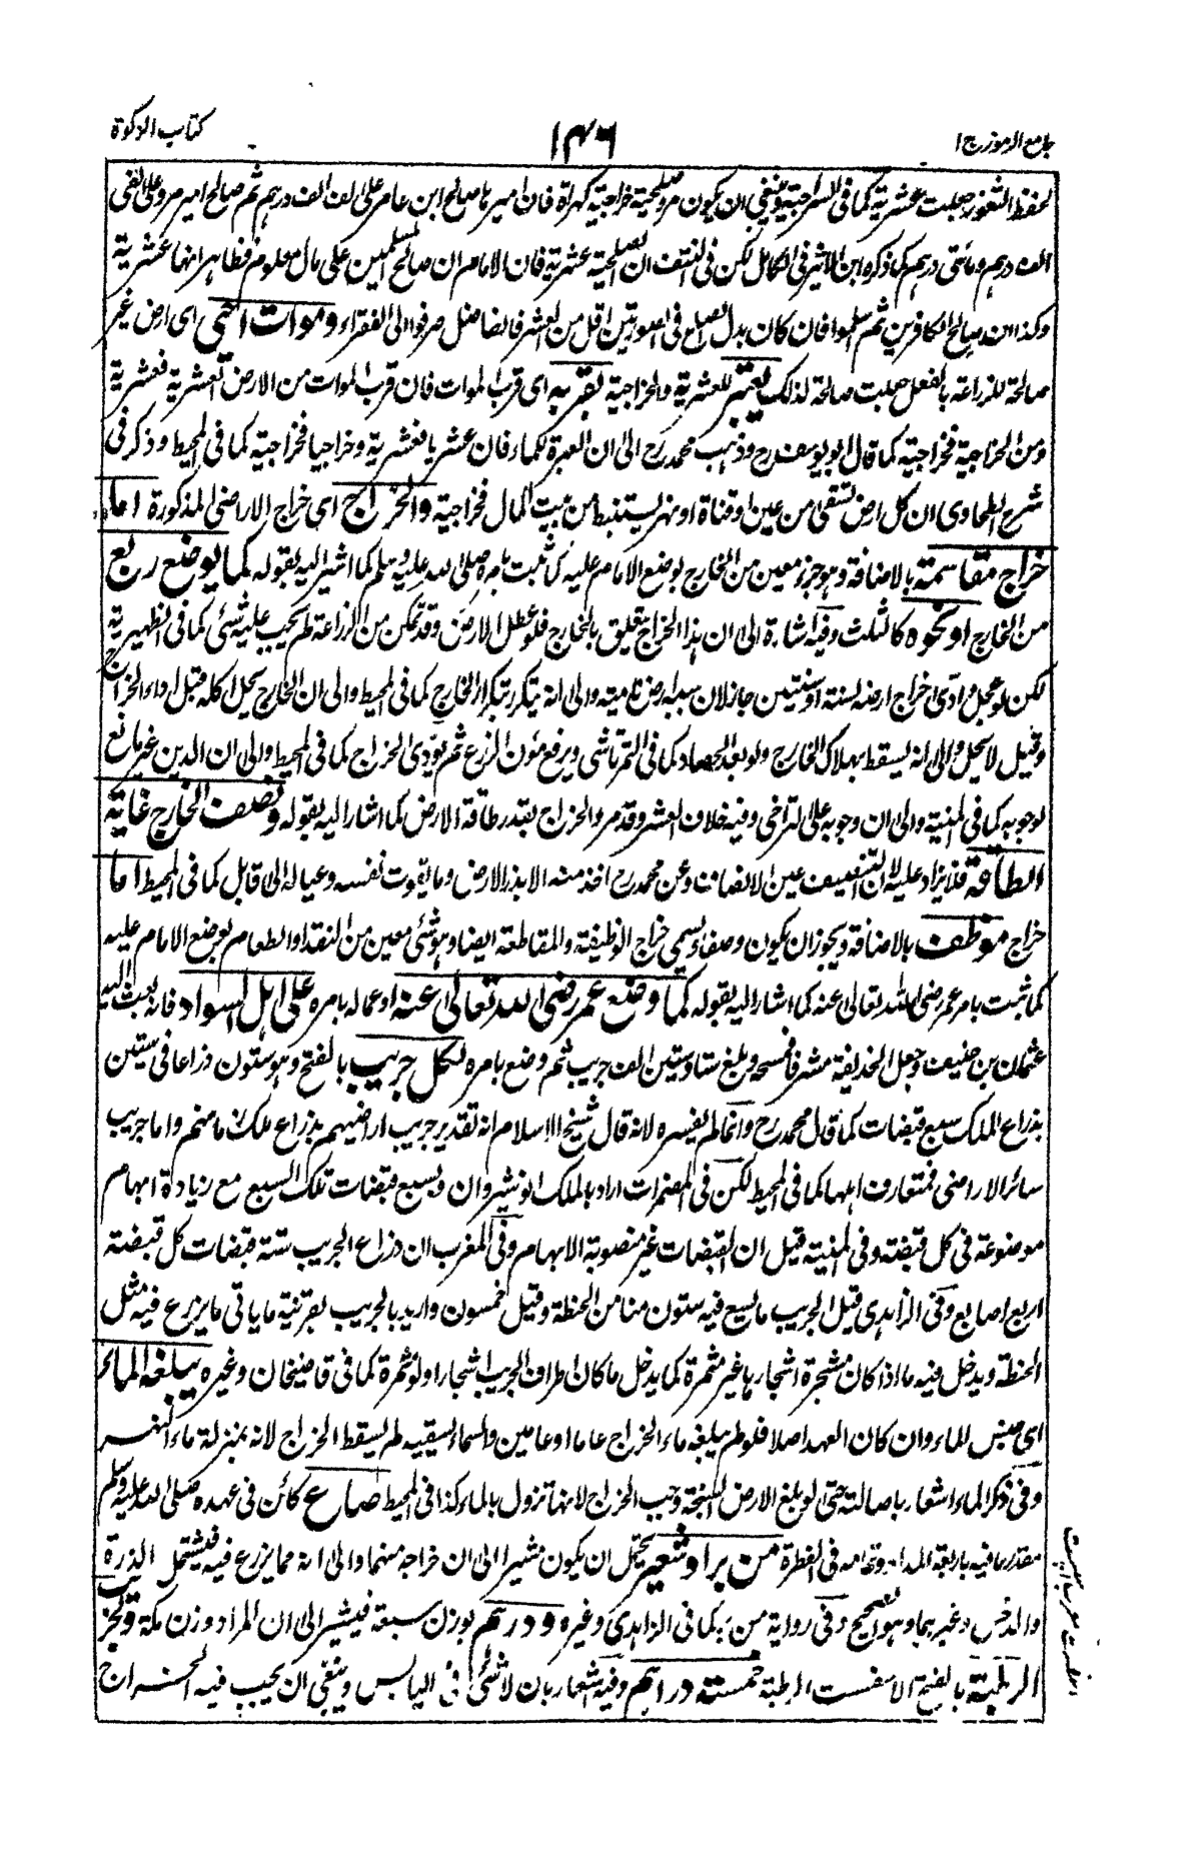 جامع الرموز ج ١
١٣٦
كتاب الزكوة
لحفظ الثغور جعلت عشرية كما فى السراجية وينبغى ان يكون مرو صلحية خراجية كهراة فان اميرها صالح ابن عامر على الف الف درهم ثم صالح امير مرو على الفى
الف درهم ومائتى درهم كما ذكره ابن الاثير فى الكامل لكن فى النتف ان الصلحية عشرية فان الامام ان صالح المسلمين على مال معلوم فظاهر انها عشرية
وكذا ان صالح الكافرين ثم اسلموا فان كان بدل الصلح فى الصورتين اقل من العشر فالفاضل صرفوا الى الفقراء وموات احيى اى ارض غير
صالحة للزراعة بالفعل جعلت صالحة لذلك يعتبر للعشرية والخراجية بقربه اى قرب الموات فان قرب الموات من الارض العشرية فعشرية
ومن الخراجية فخراجية كما قال ابو يوسف رح وذهب محمد رح الى ان العبرة للماء فان عشريا فعشرية وخراجيا فخراجية كما فى المحيط وذكر فى
شرح الطحاوى ان كل ارض تسقى من عين او قناة او نهر يستنبط من بيت المال فخراجية والخراج اى خراج الاراضى المذكورة اما
خراج مقاسمة بالاضافة وهو جزء معين من الخارج يوضع الامام عليه كما ثبت بامره صلى الله عليه وسلم كما اشير اليه بقوله كما يوضع ربع
من الخارج او نحوه كالثلث وفيه اشارة الى ان هذا الخراج يتعلق بالخارج فلو عطل الارض وقد تمكن من الزراعة لم يجب عليه شئ كما فى الظهيرية
لكن لو عجل وادى خراج ارضه لسنة او سنتين جاز لان سببه ارض نامية والى انه يتكرر بتكرار الخارج كما فى المحيط والى ان الخارج يحل اكله قبل اداء الخراج
وقيل لا يحل والى انه يسقط بهلاك الخارج ولو بعد الحصاد كما فى التمرتاشى ويرفع مؤن الزرع ثم يؤدى الخراج كما فى المحيط والى ان الدين غير مانع
لوجوبه كما فى المنية والى ان وجوبه على التراخى وفيه خلاف العشر وقد مر والخراج بقدر طاقة الارض كما اشار اليه بقوله ونصف الخارج غاية
الطاقة فلا يزاد عليه لان التنصيف عين الانصاف وعن محمد رح اخذ منه الا بذر الارض وما يقوت نفسه وعياله الى قابل كما فى المحيط اما
خراج موظف بالاضافة ويجوز ان يكون وصفا ويسمى خراج الوظيفة والمقاطعة ايضا وهو شئ معين من النقد او الطعام يوضع الامام عليه
كما ثبت بامر عمر رضى الله تعالى عنه كما اشار اليه بقوله كما وضع عمر رضى الله تعالى عنه او عماله بامره على اهل السواد فانه بعث اليه
عثمان بن حنيف وجعل الحذيفة مشرفا فمسحه وبلغ ستا وستين الف جريب ثم وضع بامره لكل جريب بالفتح وهو ستون ذراعا فى ستين
بذراع الملك سبع قبضات كما قال محمد رح وانما لم يفسره لانه قال شيخ الاسلام انه تقدير جريب اراضيهم بذراع ملك ما منهم واما جريب
سائر الاراضى فمتعارف اهلها كما فى المحيط لكن فى المضمرات اراد بالملك انوشيروان وسبع قبضات تلك السبع مع زيادة ابهام
موضوعة فى كل قبضة وفى المنية قيل ان القبضات غير منصوبة الابهام وفى المغرب ان ذراع الجريب ستة قبضات كل قبضة
اربع اصابع وفى الزاهدى قيل الجريب ما يسع فيه ستون منا من الحنطة وقيل خمسون واريد بالجريب بقرينة ما ياتى ما يزرع فيه مثل
الحنطة ويدخل فيه ما اذا كان مشجرة اشجارها غير مثمرة كما يدخل ما كان اطراف الجريب اشجارا ولو مثمرة كما فى قاضيخان وغيره يبلغه الماء
اى جنس للماء وان كان العهد اصلا فلو لم يبلغه ماء الخراج عاما او عامين والسماء يسقيه لم يسقط الخراج لانه بمنزلة ماء النهر
وفى ذكر الماء اشعار باصالته حتى لو بلغ الارض السبخة وجب الخراج لانها تزول بالماء كذا فى المحيط صاع كائن فى عهده صلى الله عليه وسلم
مقدر ما فيه باربعة امداد وتمامه فى الفطرة من بر او شعير يحتمل ان يكون مشيرا الى ان خراجه منهما والى انه مما يزرع فيه فيشتمل الذرة
والدخن وغيرهما وهو الصحيح وفى رواية من بر كما فى الزاهدى وغيره ودرهم بوزن سبعة فيشير الى ان المراد وزن مكة ولجريب
الرطبة بالفتح الاسفست الرطبة خمسة دراهم وفيه اشعار بان لا شئ فى اليابس وينبغى ان يجب فيه الخراج